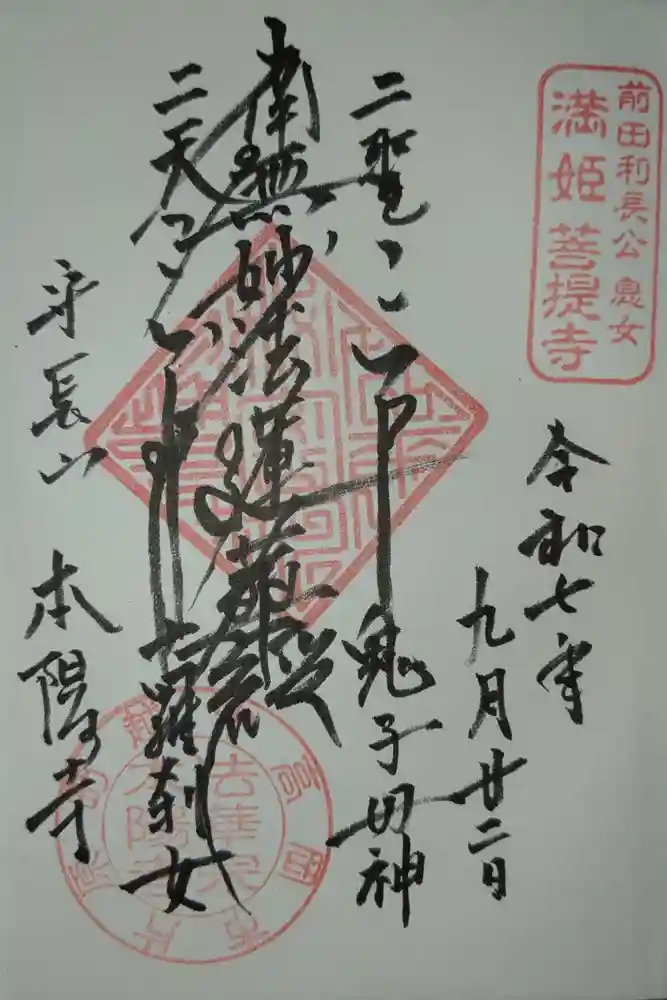 前田利長公息女
満姫菩提寺
令和七年
九月廿二日
二聖
鬼子母神
南無妙法蓮華経
二天
十羅刹女
守長山
本陽寺
法華宗
本陽寺